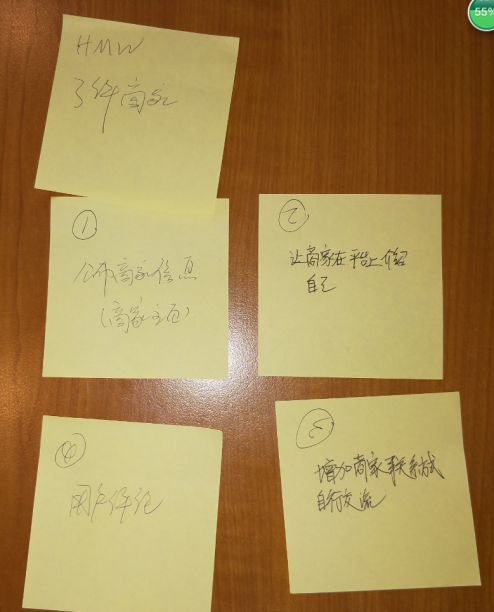 55%
HMW
了解商家
①
公布商家信息
(商家主页)
②
让商家在平台上介绍
自己
④
用户评论
⑤
增加商家联系方式
自行交流